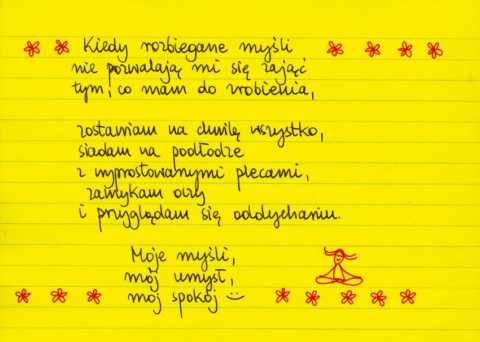 Kiedy rozbiegane myśli
nie pozwalają mi się zająć
tym, co mam do zrobienia,
zostawiam na chwilę wszystko,
siadam na podłodze
z wyprostowanymi plecami,
zamykam oczy
i przyglądam się oddychaniu.
Moje myśli,
mój umysł,
mój spokój :)